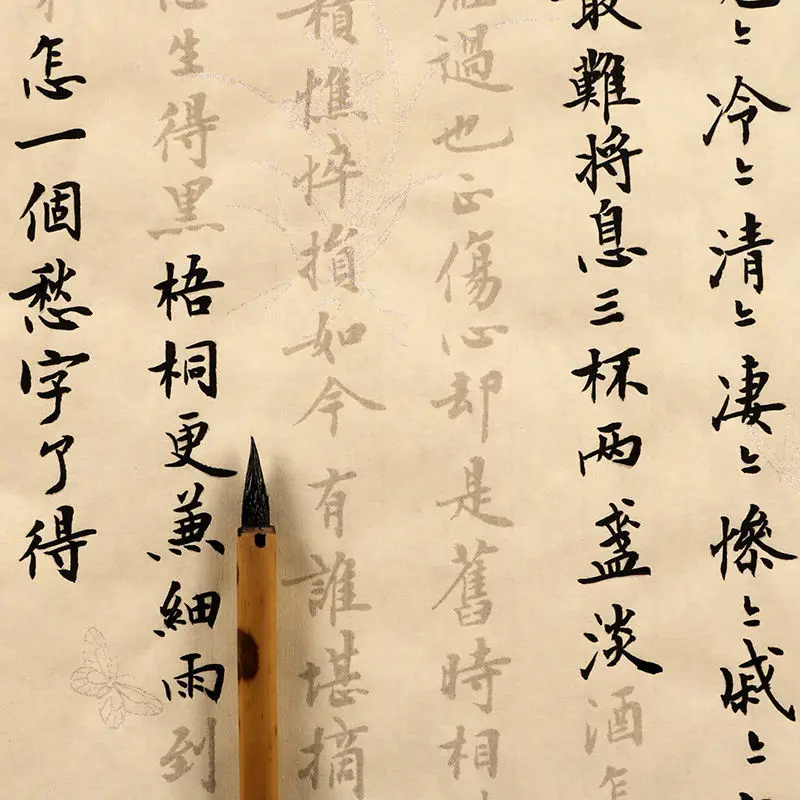 〻冷〻清〻淒〻慘〻戚〻
最難將息三杯两盏淡酒怎
過也正傷心却是舊時相
積憔悴損如今有誰堪摘
生得黑梧桐更兼細雨到
怎一個愁字了得